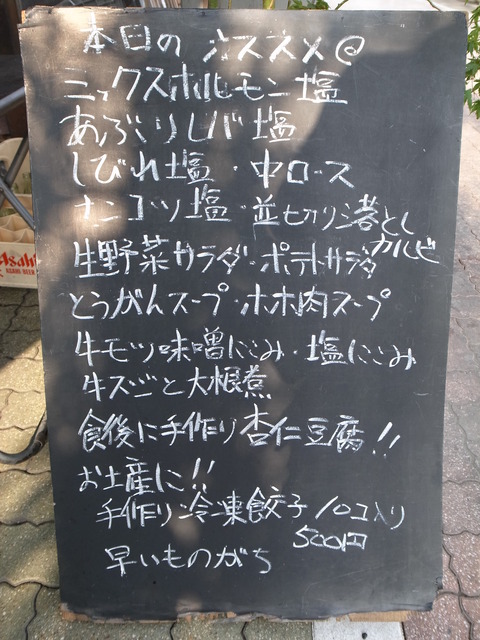 本日のオススメ@
ミックスホルモン塩
あぶりレバ塩
しびれ塩・中ロース
ナンコツ塩・並切り落とし
カルビ
生野菜サラダ・ポテトサラダ
とうがんスープ・ホホ肉スープ
牛モツ味噌にこみ・塩にこみ
牛スジと大根煮
食後に手作り杏仁豆腐!!
お土産に!!
手作り冷凍餃子10コ入り
500円
早いものがち
Asahi
ASAHI BEER